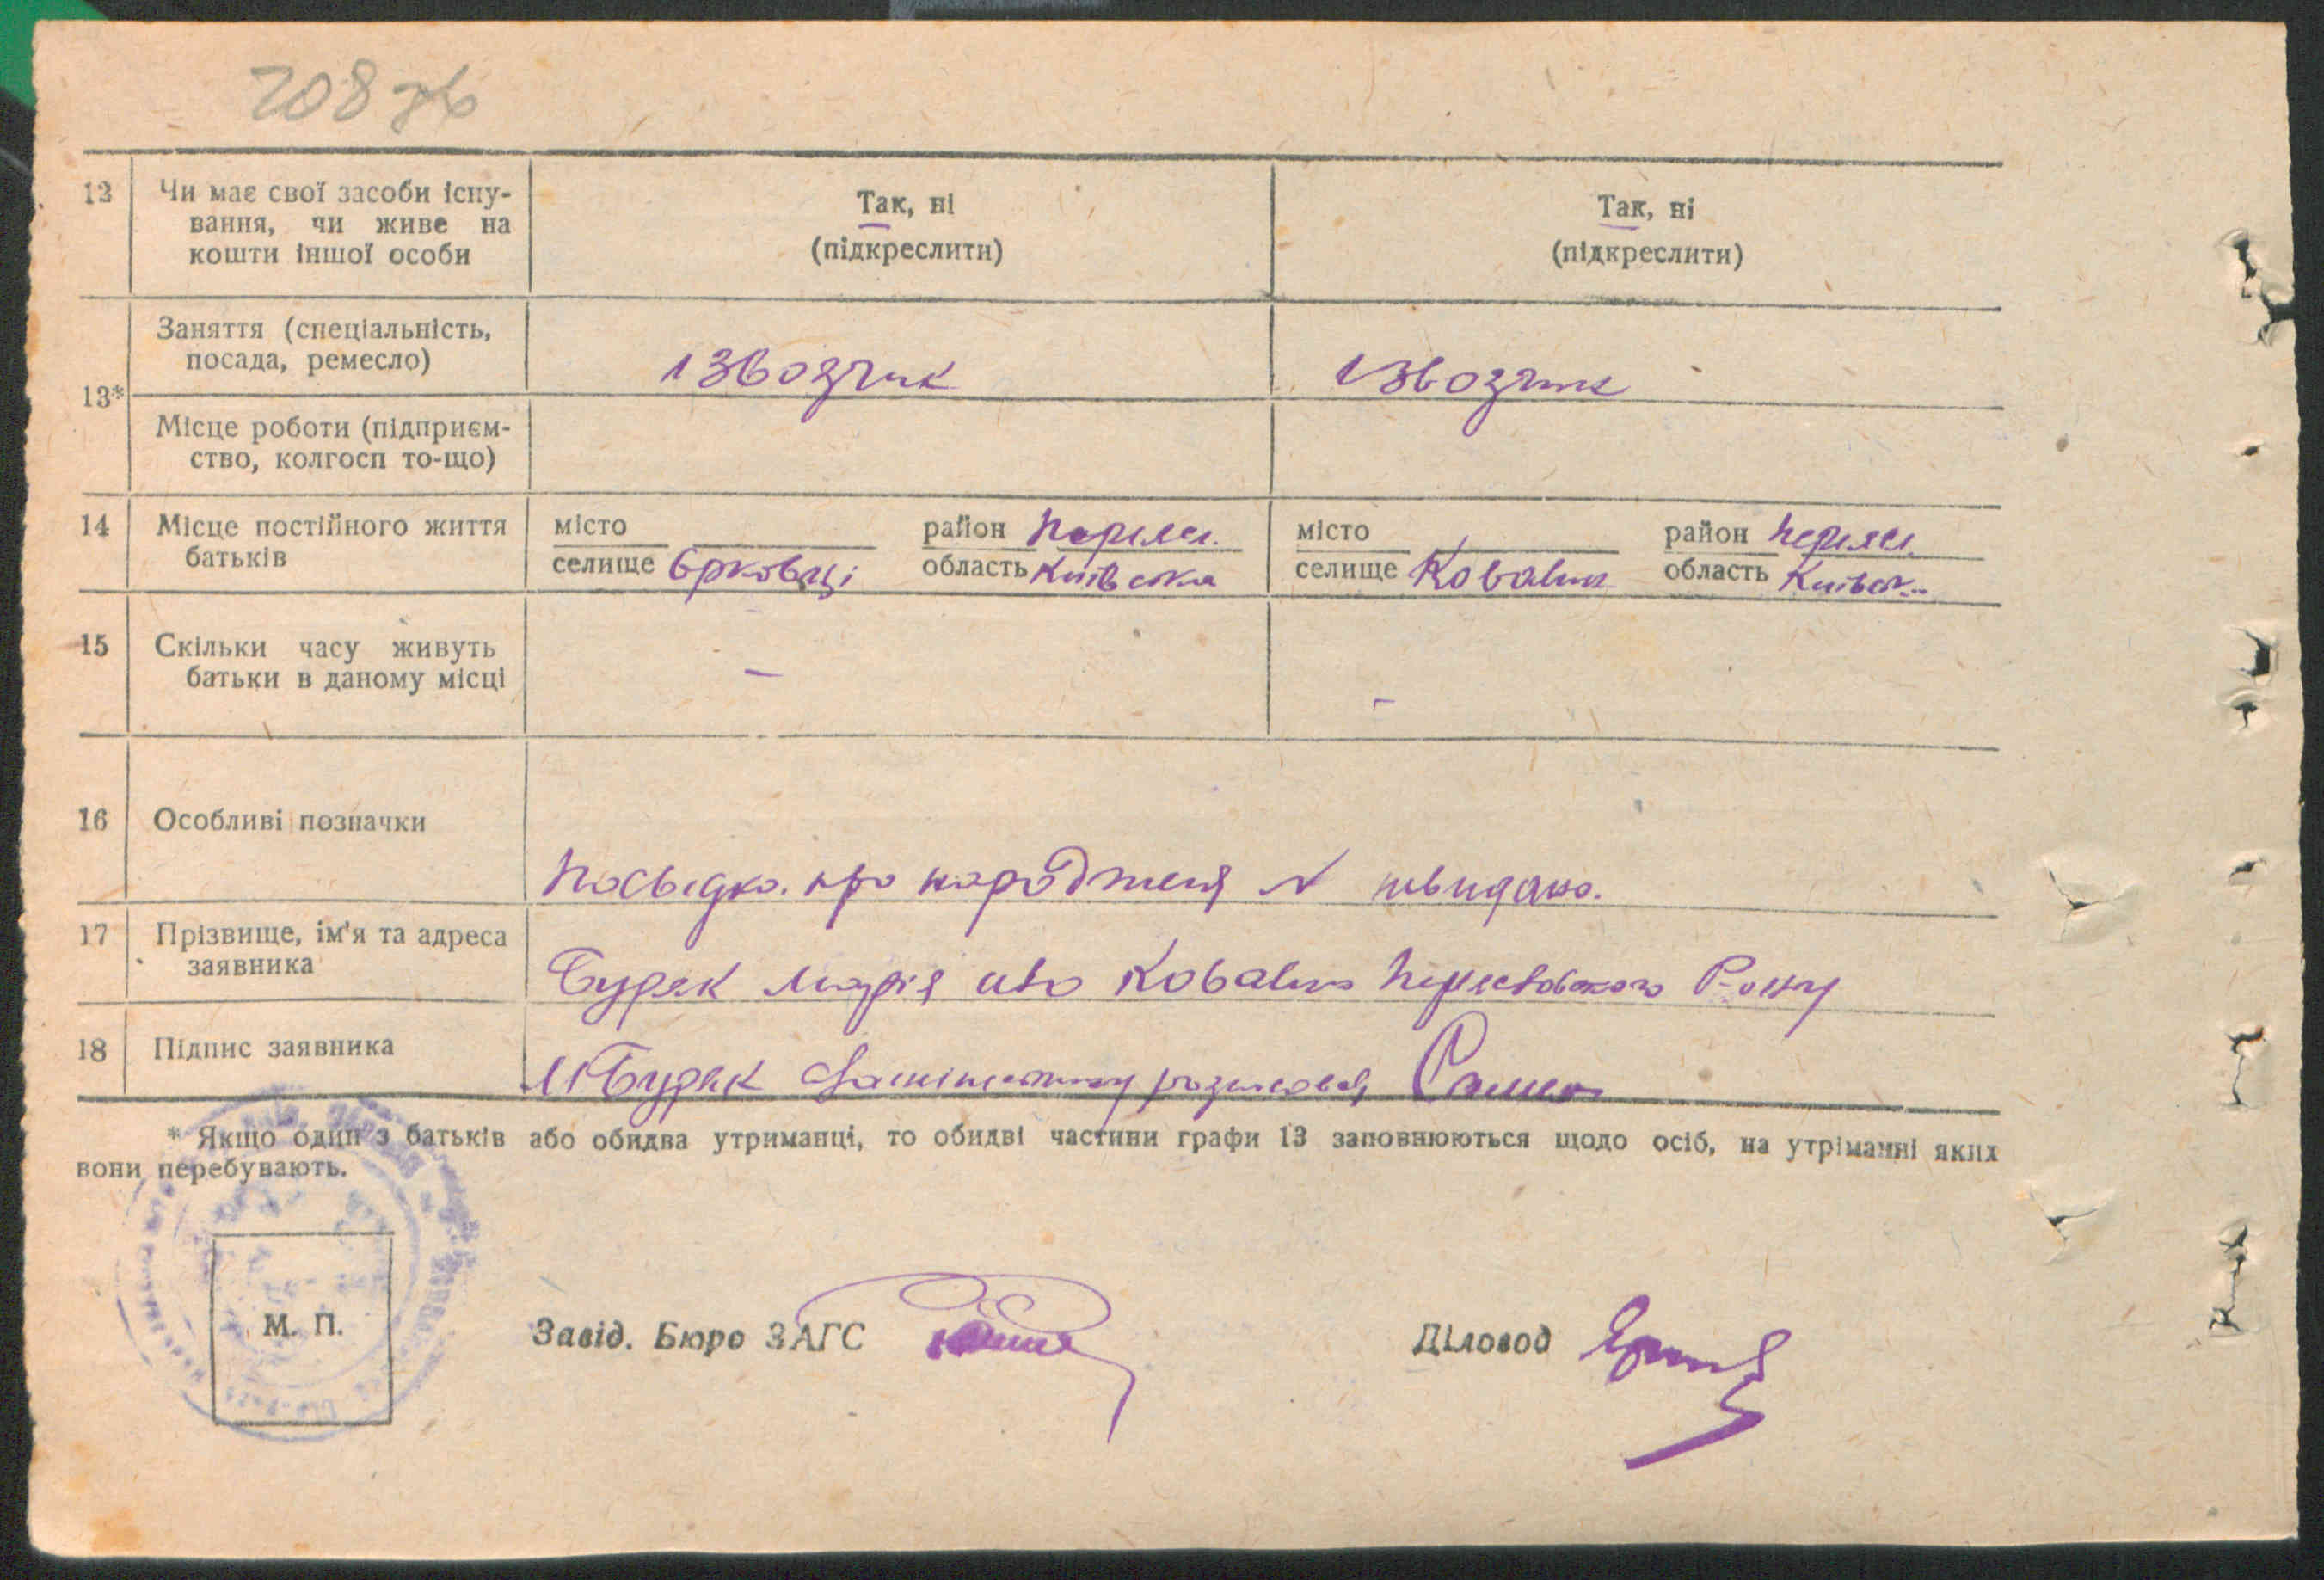 208 зв
12 Чи має свої засоби існу- Так, ні Так, ні
вання, чи живе на (підкреслити) (підкреслити)
кошти іншої особи
13* Заняття (спеціальність, ізвозчик ізвозчик
посада, ремесло)
Місце роботи (підприєм-
ство, колгосп то-що)
14 Місце постійного життя місто район Переяс. місто район Переяс.
батьків селище Єрковці область Київська селище Ковалин область Київськ...
15 Скільки часу живуть - -
батьки в даному місці
16 Особливі позначки
Посвідка про народженя №
17 Прізвище, ім'я та адреса
заявника Буряк Марія Ковалин Р-ону
18 Підпис заявника
Буряк
* Якщо один з батьків або обидва утриманці, то обидві частини графи 13 заповнюються щодо осіб, на утріманні яких
вони перебувають.
М. П. Завід. Бюро ЗАГС Діловод